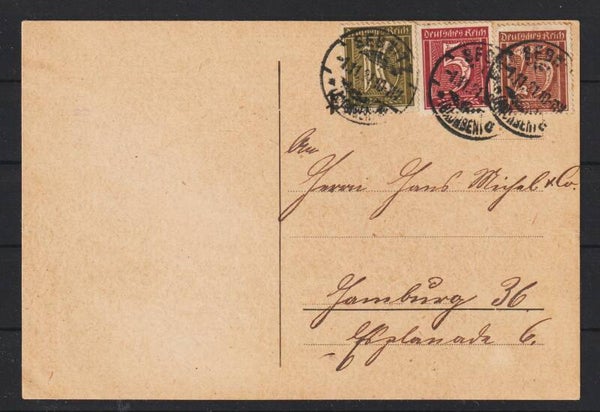 Deutsches Reich
5
Deutsches Reich
An
Herrn Hans Michel & Co.
Hamburg 36
Esplanade 6.